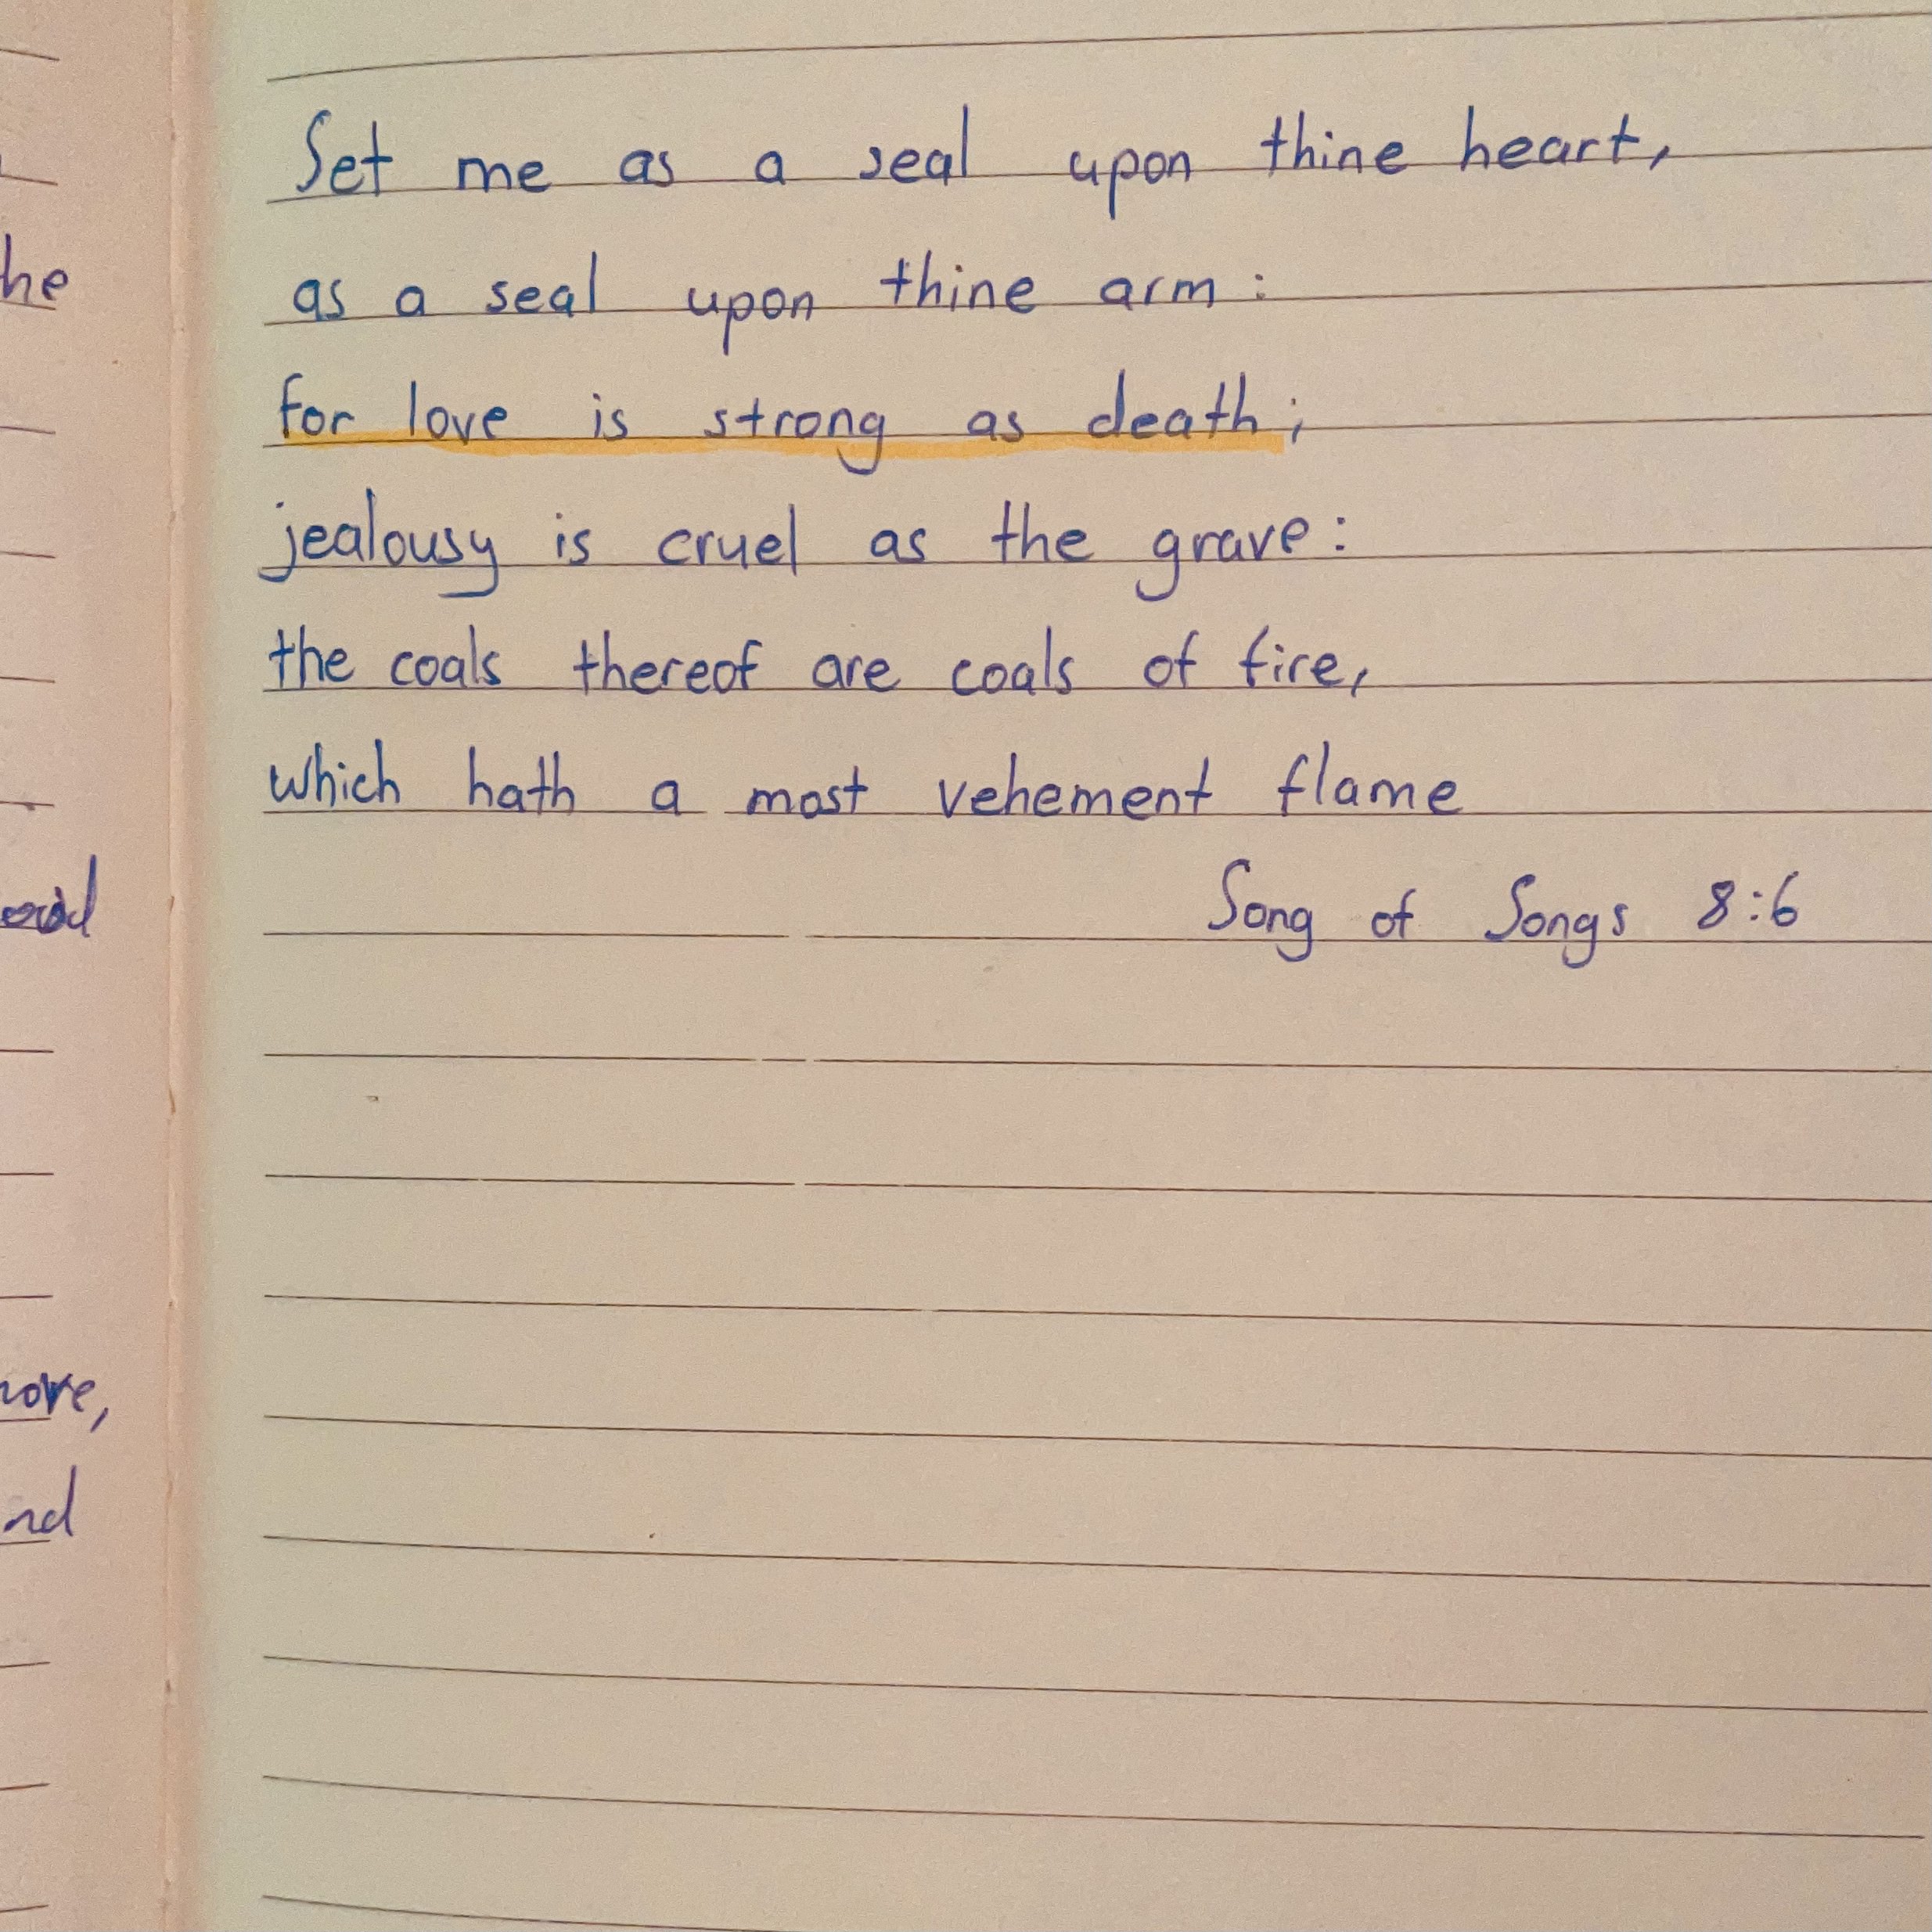 Set me as a seal upon thine heart,
as a seal upon thine arm:
for love is strong as death;
jealousy is cruel as the grave:
the coals thereof are coals of fire,
which hath a most vehement flame
Song of Songs 8:6